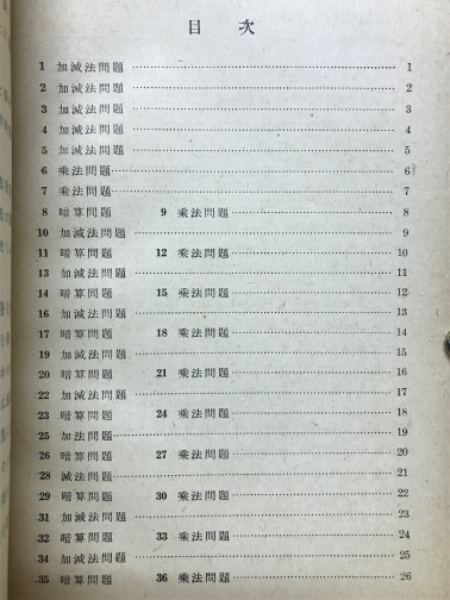 目 次
1 加減法問題 …… 1
2 加減法問題 …… 2
3 加減法問題 …… 3
4 加減法問題 …… 4
5 加減法問題 …… 5
6 乘法問題 …… 6
7 乘法問題 …… 7
8 暗算問題 9 乘法問題 …… 8
10 加減法問題 …… 9
11 暗算問題 12 乘法問題 …… 10
13 加減法問題 …… 11
14 暗算問題 15 乘法問題 …… 12
16 加減法問題 …… 13
17 暗算問題 18 乘法問題 …… 14
19 加減法問題 …… 15
20 暗算問題 21 乘法問題 …… 16
22 加減法問題 …… 17
23 暗算問題 24 乘法問題 …… 18
25 加法問題 …… 19
26 暗算問題 27 乘法問題 …… 20
28 減法問題 …… 21
29 暗算問題 30 乘法問題 …… 22
31 加減法問題 …… 23
32 暗算問題 33 乘法問題 …… 24
34 加減法問題 …… 25
35 暗算問題 36 乘法問題 …… 26